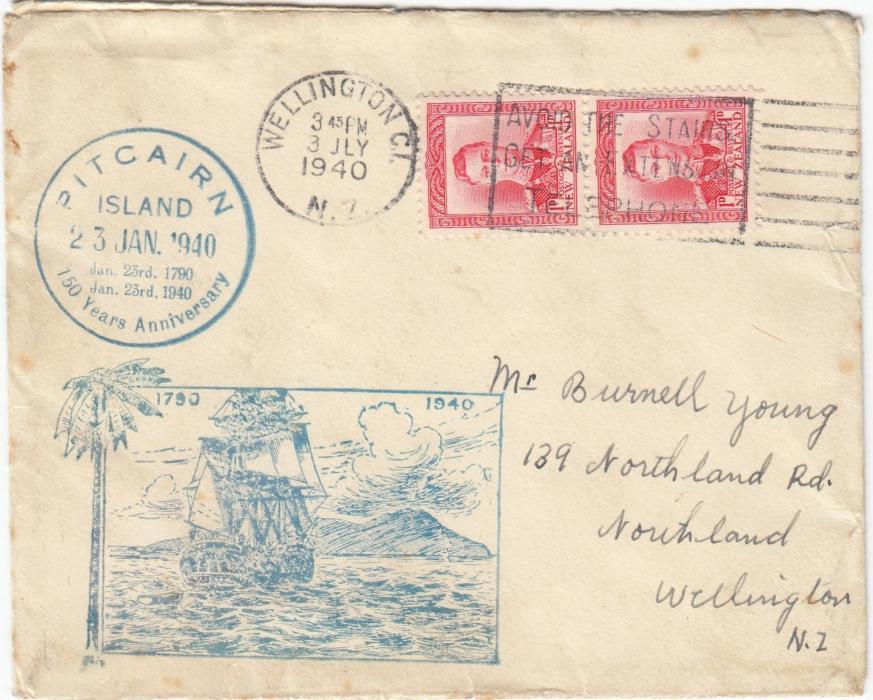 WELLINGTON C1.
3 45 PM
3 JLY
1940
N.Z.
AVOID THE STAIRS
GET AN EXTENSION
TELEPHONE
1D
NEW ZEALAND
1D
NEW ZEALAND
PITCAIRN
ISLAND
23 JAN. 1940
Jan. 23rd. 1790
Jan. 23rd, 1940
150 Years Anniversary
1790
1940
Mr Burnell Young
139 Northland Rd.
Northland
Wellington
N.Z